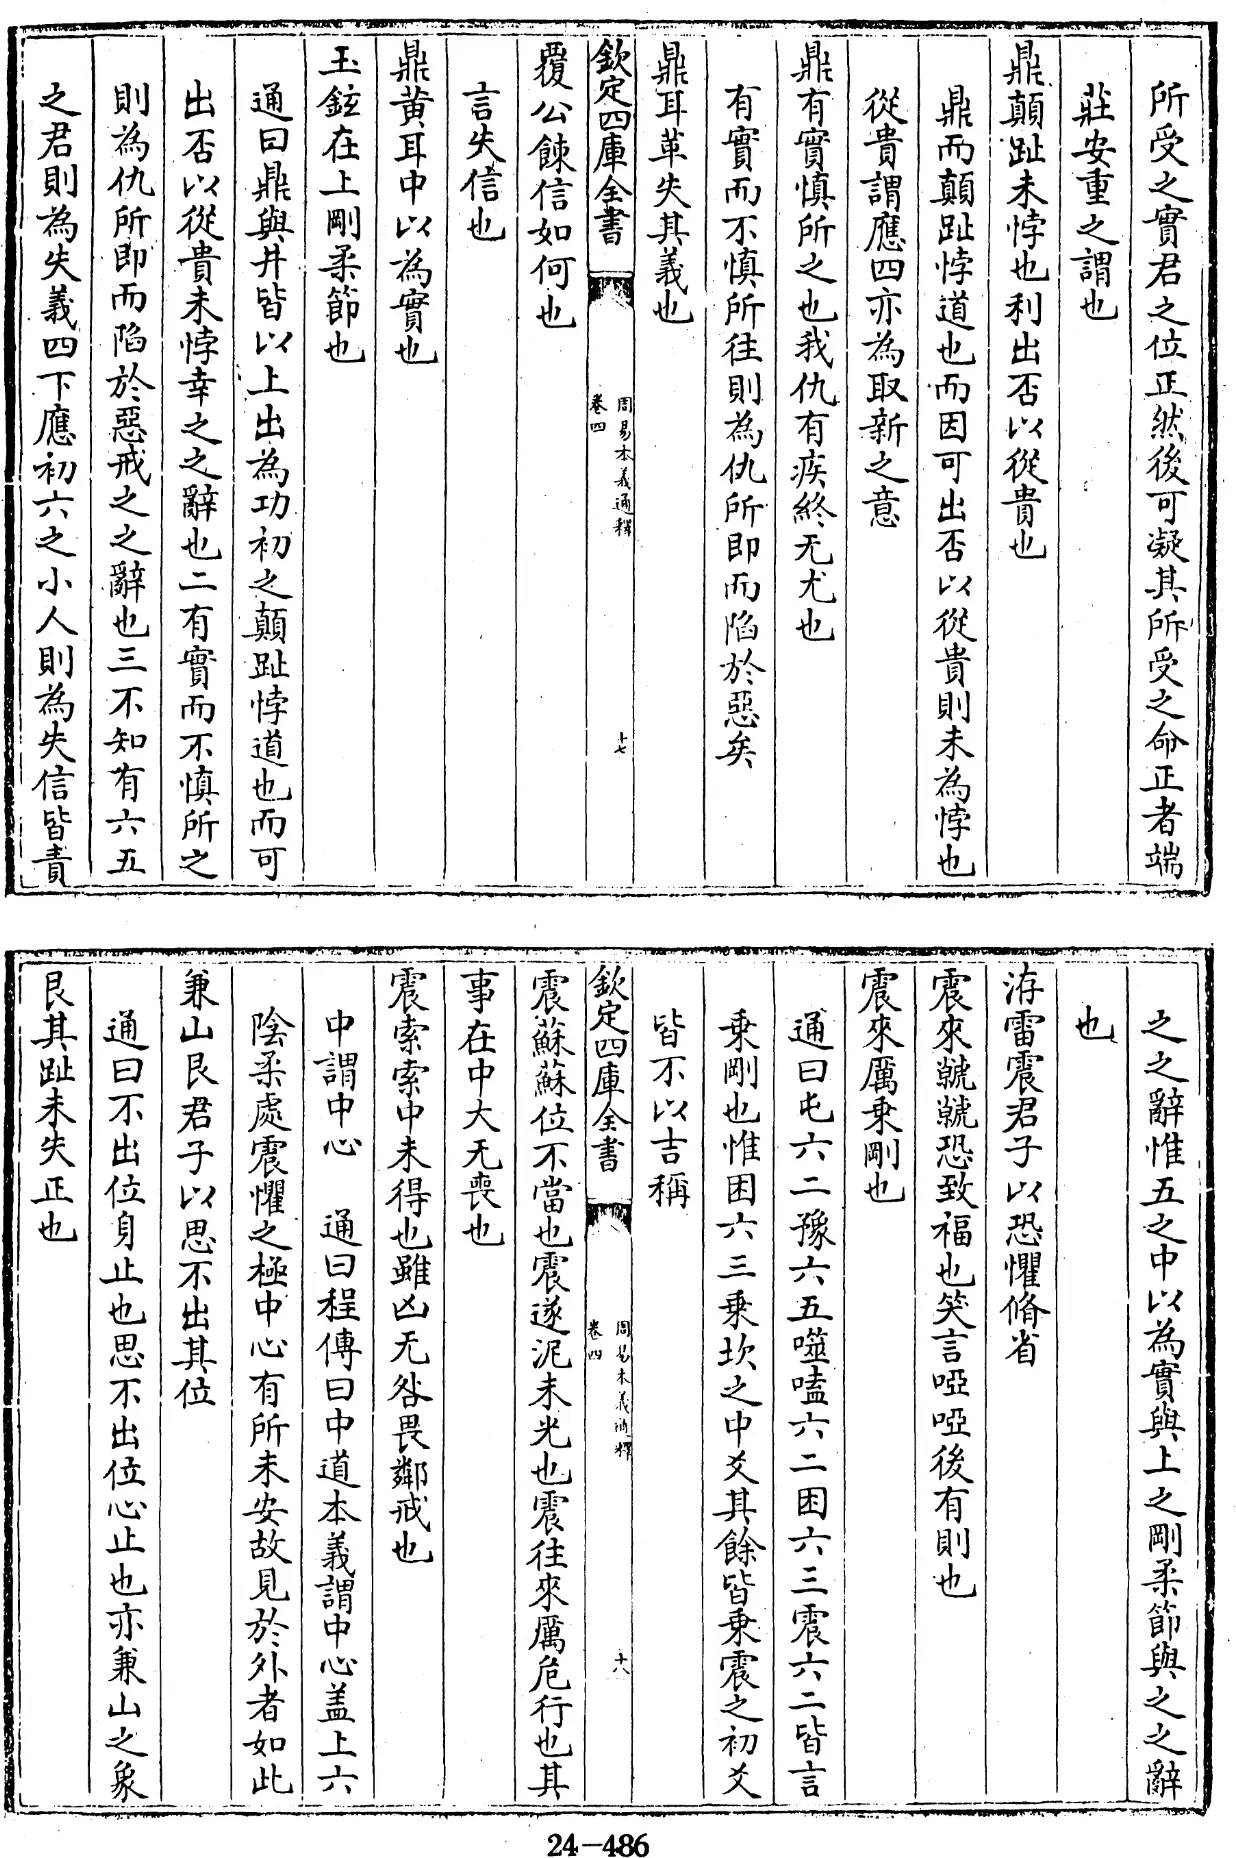 所受之實君之位正然後可凝其所受之命正者端
莊安重之謂也
鼎顛趾未悖也利出否以從貴也
鼎而顛趾悖道也而因可出否以從貴則未為悖也
從貴謂應四亦為取新之意
鼎有實慎所之也我仇有疾終无尤也
有實而不慎所往則為仇所即而陷於惡矣
鼎耳革失其義也
欽定四庫全書
周易本義通釋
卷四
十七
覆公餗信如何也
言失信也
鼎黄耳中以為實也
玉鉉在上剛柔節也
通曰鼎與井皆以上出為功初之顛趾悖道也而可
出否以從貴未悖幸之之辭也二有實而不慎所之
則為仇所即而陷於惡戒之之辭也三不知有六五
之君則為失義四下應初六之小人則為失信皆責
之之辭惟五之中以為實與上之剛柔節與之之辭
也
洊雷震君子以恐懼脩省
震來虩虩恐致福也笑言啞啞後有則也
震來厲乘剛也
通曰屯六二豫六五噬嗑六二困六三震六二皆言
乘剛也惟困六三乗坎之中爻其餘皆乘震之初爻
皆不以吉稱
欽定四庫全書
周易本義通釋
卷四
十八
震蘇蘇位不當也震遂泥未光也震往來厲危行也其
事在中大无喪也
震索索中未得也雖凶无咎畏鄰戒也
中謂中心　通曰程傳曰中道本義謂中心盖上六
陰柔處震懼之極中心有所未安故見於外者如此
兼山艮君子以思不出其位
通曰不出位身止也思不出位心止也亦兼山之象
艮其趾未失正也
24-486